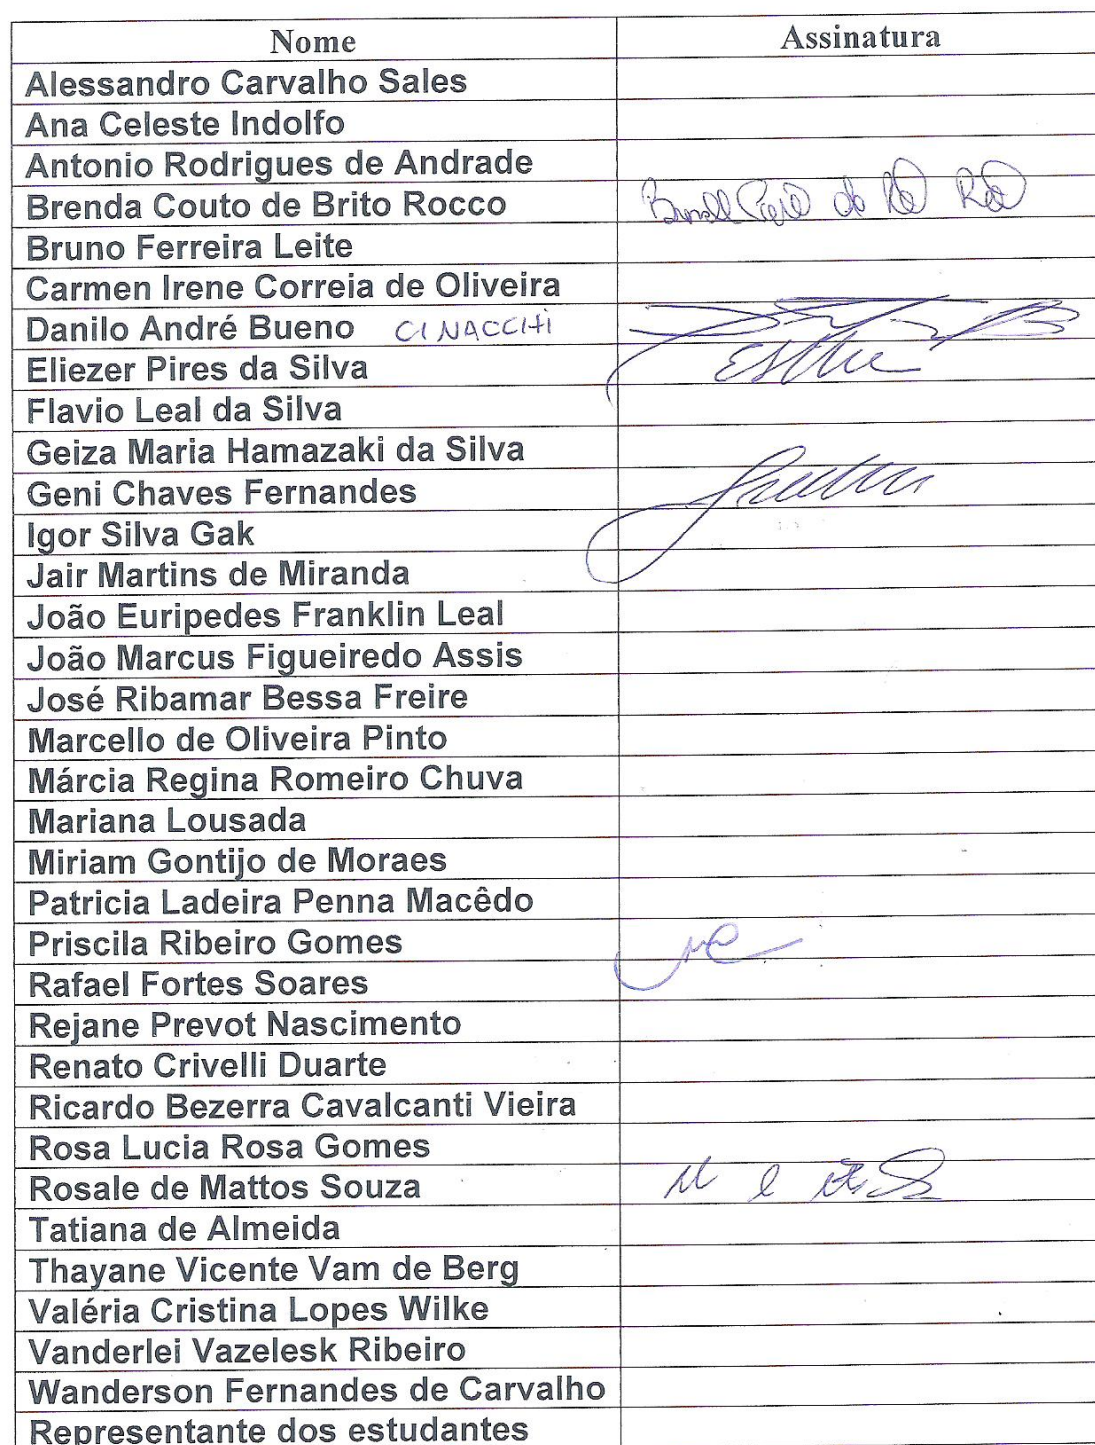 Nome Assinatura
Alessandro Carvalho Sales
Ana Celeste Indolfo
Antonio Rodrigues de Andrade
Brenda Couto de Brito Rocco
Bruno Ferreira Leite
Carmen Irene Correia de Oliveira
Danilo André Bueno CINACCHI
Eliezer Pires da Silva
Flavio Leal da Silva
Geiza Maria Hamazaki da Silva
Geni Chaves Fernandes
Igor Silva Gak
Jair Martins de Miranda
João Euripedes Franklin Leal
João Marcus Figueiredo Assis
José Ribamar Bessa Freire
Marcello de Oliveira Pinto
Márcia Regina Romeiro Chuva
Mariana Lousada
Miriam Gontijo de Moraes
Patricia Ladeira Penna Macêdo
Priscila Ribeiro Gomes
Rafael Fortes Soares
Rejane Prevot Nascimento
Renato Crivelli Duarte
Ricardo Bezerra Cavalcanti Vieira
Rosa Lucia Rosa Gomes
Rosale de Mattos Souza
Tatiana de Almeida
Thayane Vicente Vam de Berg
Valéria Cristina Lopes Wilke
Vanderlei Vazelesk Ribeiro
Wanderson Fernandes de Carvalho
Representante dos estudantes